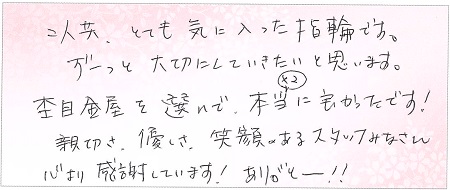 二人共、とても気に入った指輪です。
ずーっと大切にしていきたいと思います。
杢目金屋を選んで、本当に×2良かったです!
親切さ、優しさ、笑顔のあるスタッフみなさん
心より感謝しています! ありがとー!!